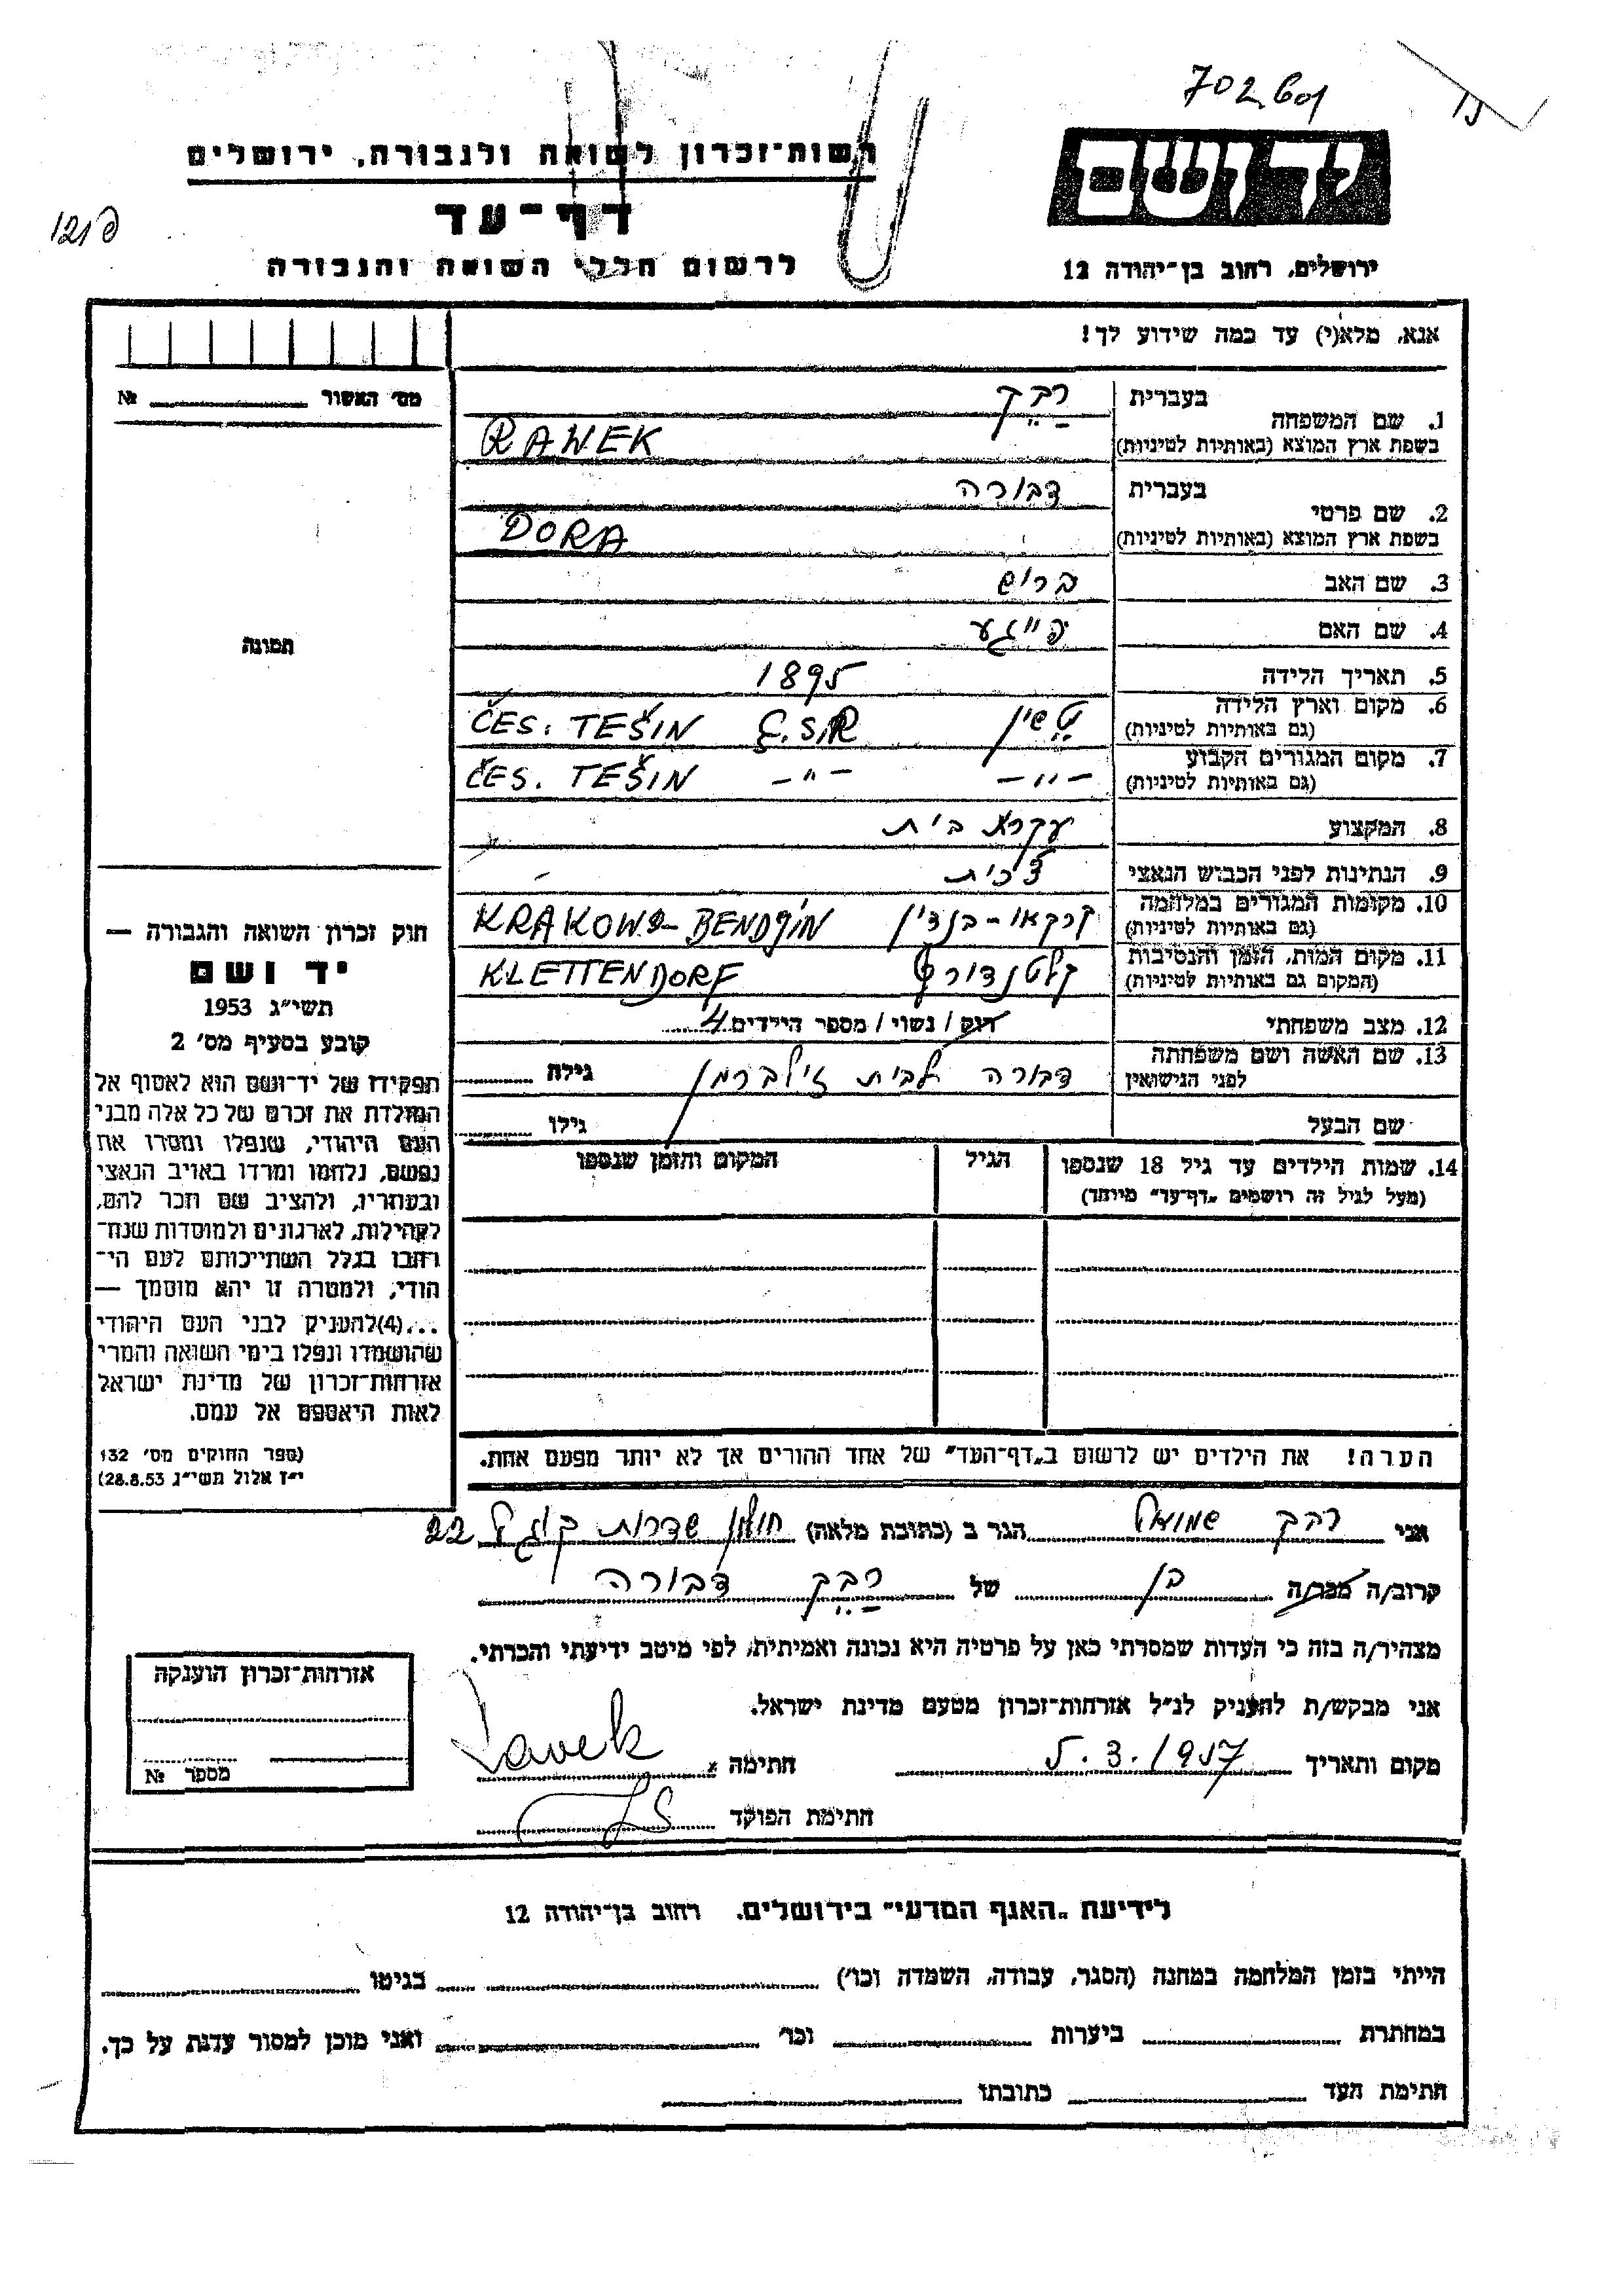 702601
יד ושם
רשות־זכרון לשואה ולגבורה, ירושלים
דף־עד
לרשום חללי השואה והגבורה
ירושלים, רחוב בן־יהודה 12
אנא, מלא(י) עד כמה שידוע לך!
מס׳ האשור № 
1. שם המשפחה
בעברית רבק
בשפת ארץ המוצא (באותיות לטיניות) RAWEK
2. שם פרטי
בעברית דבורה
בשפת ארץ המוצא (באותיות לטיניות) DORA
3. שם האב ברוש
4. שם האם פייגע
5. תאריך הלידה 1895
6. מקום וארץ הלידה טשין Č.S.R ČES. TEŠIN
(גם באותיות לטיניות)
7. מקום המגורים הקבוע –"– –"– ČES. TEŠIN
(גם באותיות לטיניות)
8. המקצוע עקרת בית
9. הנתינות לפני הכבוש הנאצי צ׳כית
10. מקומות המגורים במלחמה קרקאו–בנדין
(גם באותיות לטיניות)
11. מקום המות, הזמן והנסיבות קלטנדורף KLETTENDORF
(המקום גם באותיות לטיניות)
12. מצב משפחתי רוק / נשוי / מספר הילדים 4
13. שם האשה ושם משפחתה דבורה לבית זילברמן גילה
לפני הנישואין
שם הבעל גילו
14. שמות הילדים עד גיל 18 שנספו הגיל המקום והזמן שנספו
(מעל לגיל זה רושמים „דף־עד״ מיוחד)
הערה! את הילדים יש לרשום ב„דף־העד״ של אחד ההורים אך לא יותר מפעם אחת.
תמונה
חוק זכרון השואה והגבורה —
יד ושם
תשי״ג 1953
קובע בסעיף מס׳ 2
תפקידו של יד־ושם הוא לאסוף אל
המולדת את זכרם של כל אלה מבני
העם היהודי, שנפלו ומסרו את
נפשם, נלחמו ומרדו באויב הנאצי
ובעוזריו, ולהציב שם וזכר להם,
לקהילות, לארגונים ולמוסדות שנח־
רבו בגלל השתייכותם לעם הי־
הודי, ולמטרה זו יהא מוסמך —
...(4)להעניק לבני העם היהודי
שהושמדו ונפלו בימי השואה והמרי
אזרחות־זכרון של מדינת ישראל
לאות היאספם אל עמם.
(ספר החוקים מס׳ 132
י״ז אלול תשי״ג 28.8.53)
אני רבק שמואל הגר ב (כתובת מלאה) חולון שדרות קוגל 22
קרוב/ה מכר/ה בן של רבק דבורה
מצהיר/ה בזה כי העדות שמסרתי כאן על פרטיה היא נכונה ואמיתית, לפי מיטב ידיעתי והכרתי.
אני מבקש/ת להעניק לנ״ל אזרחות־זכרון מטעם מדינת ישראל.
מקום ותאריך 5.3.1957 חתימה × Ravek
חתימת הפוקד
אזרחות־זכרון הוענקה
מספר №
לידיעת „האגף המדעי״ בירושלים. רחוב בן־יהודה 12
הייתי בזמן המלחמה במחנה (הסגר, עבודה, השמדה וכו׳) בגיטו
במחתרת ביערות וכו׳ ואני מוכן למסור עדות על כך.
חתימת העד כתובתו